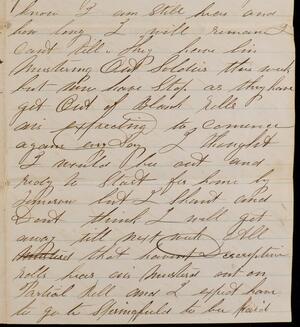 know I am Still hear and
how long I will remane I
Cant Tell. They have bin
Mustering Out Soldiers this week
but Now have Stop. as they have
got Out of Blank Rolls
air expecting to comence
again any Day I thought
I would be out and
redy to Start for home by
tomorow but I Shant and
Dont think I will get
away till next week All
that havent Descriptive
rolls hear air Musterd out on
Partial Roll and I expect have
to go to Springfield to be paid